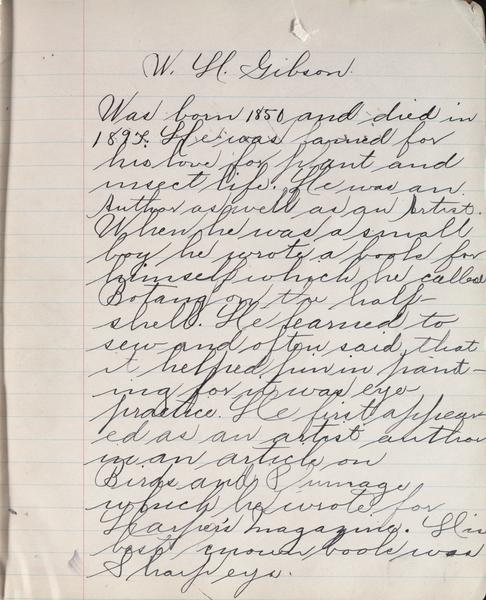 W. H. Gibson.
Was born 1850 and died in
1897. He was famed for
his love for plant and
insect life. He was an
Author as well as an Artist.
When he was a small
boy he wrote a book for
himself which he called
Botany on the half-
shell. He learned to
sew and often said that
it helped him in paint-
ing for it was eye
practice. He first appear-
ed as an artist author
in an article on
Birds and Plumage
which he wrote for
Harper's magazine. His
best known book was
Sharp eyes.